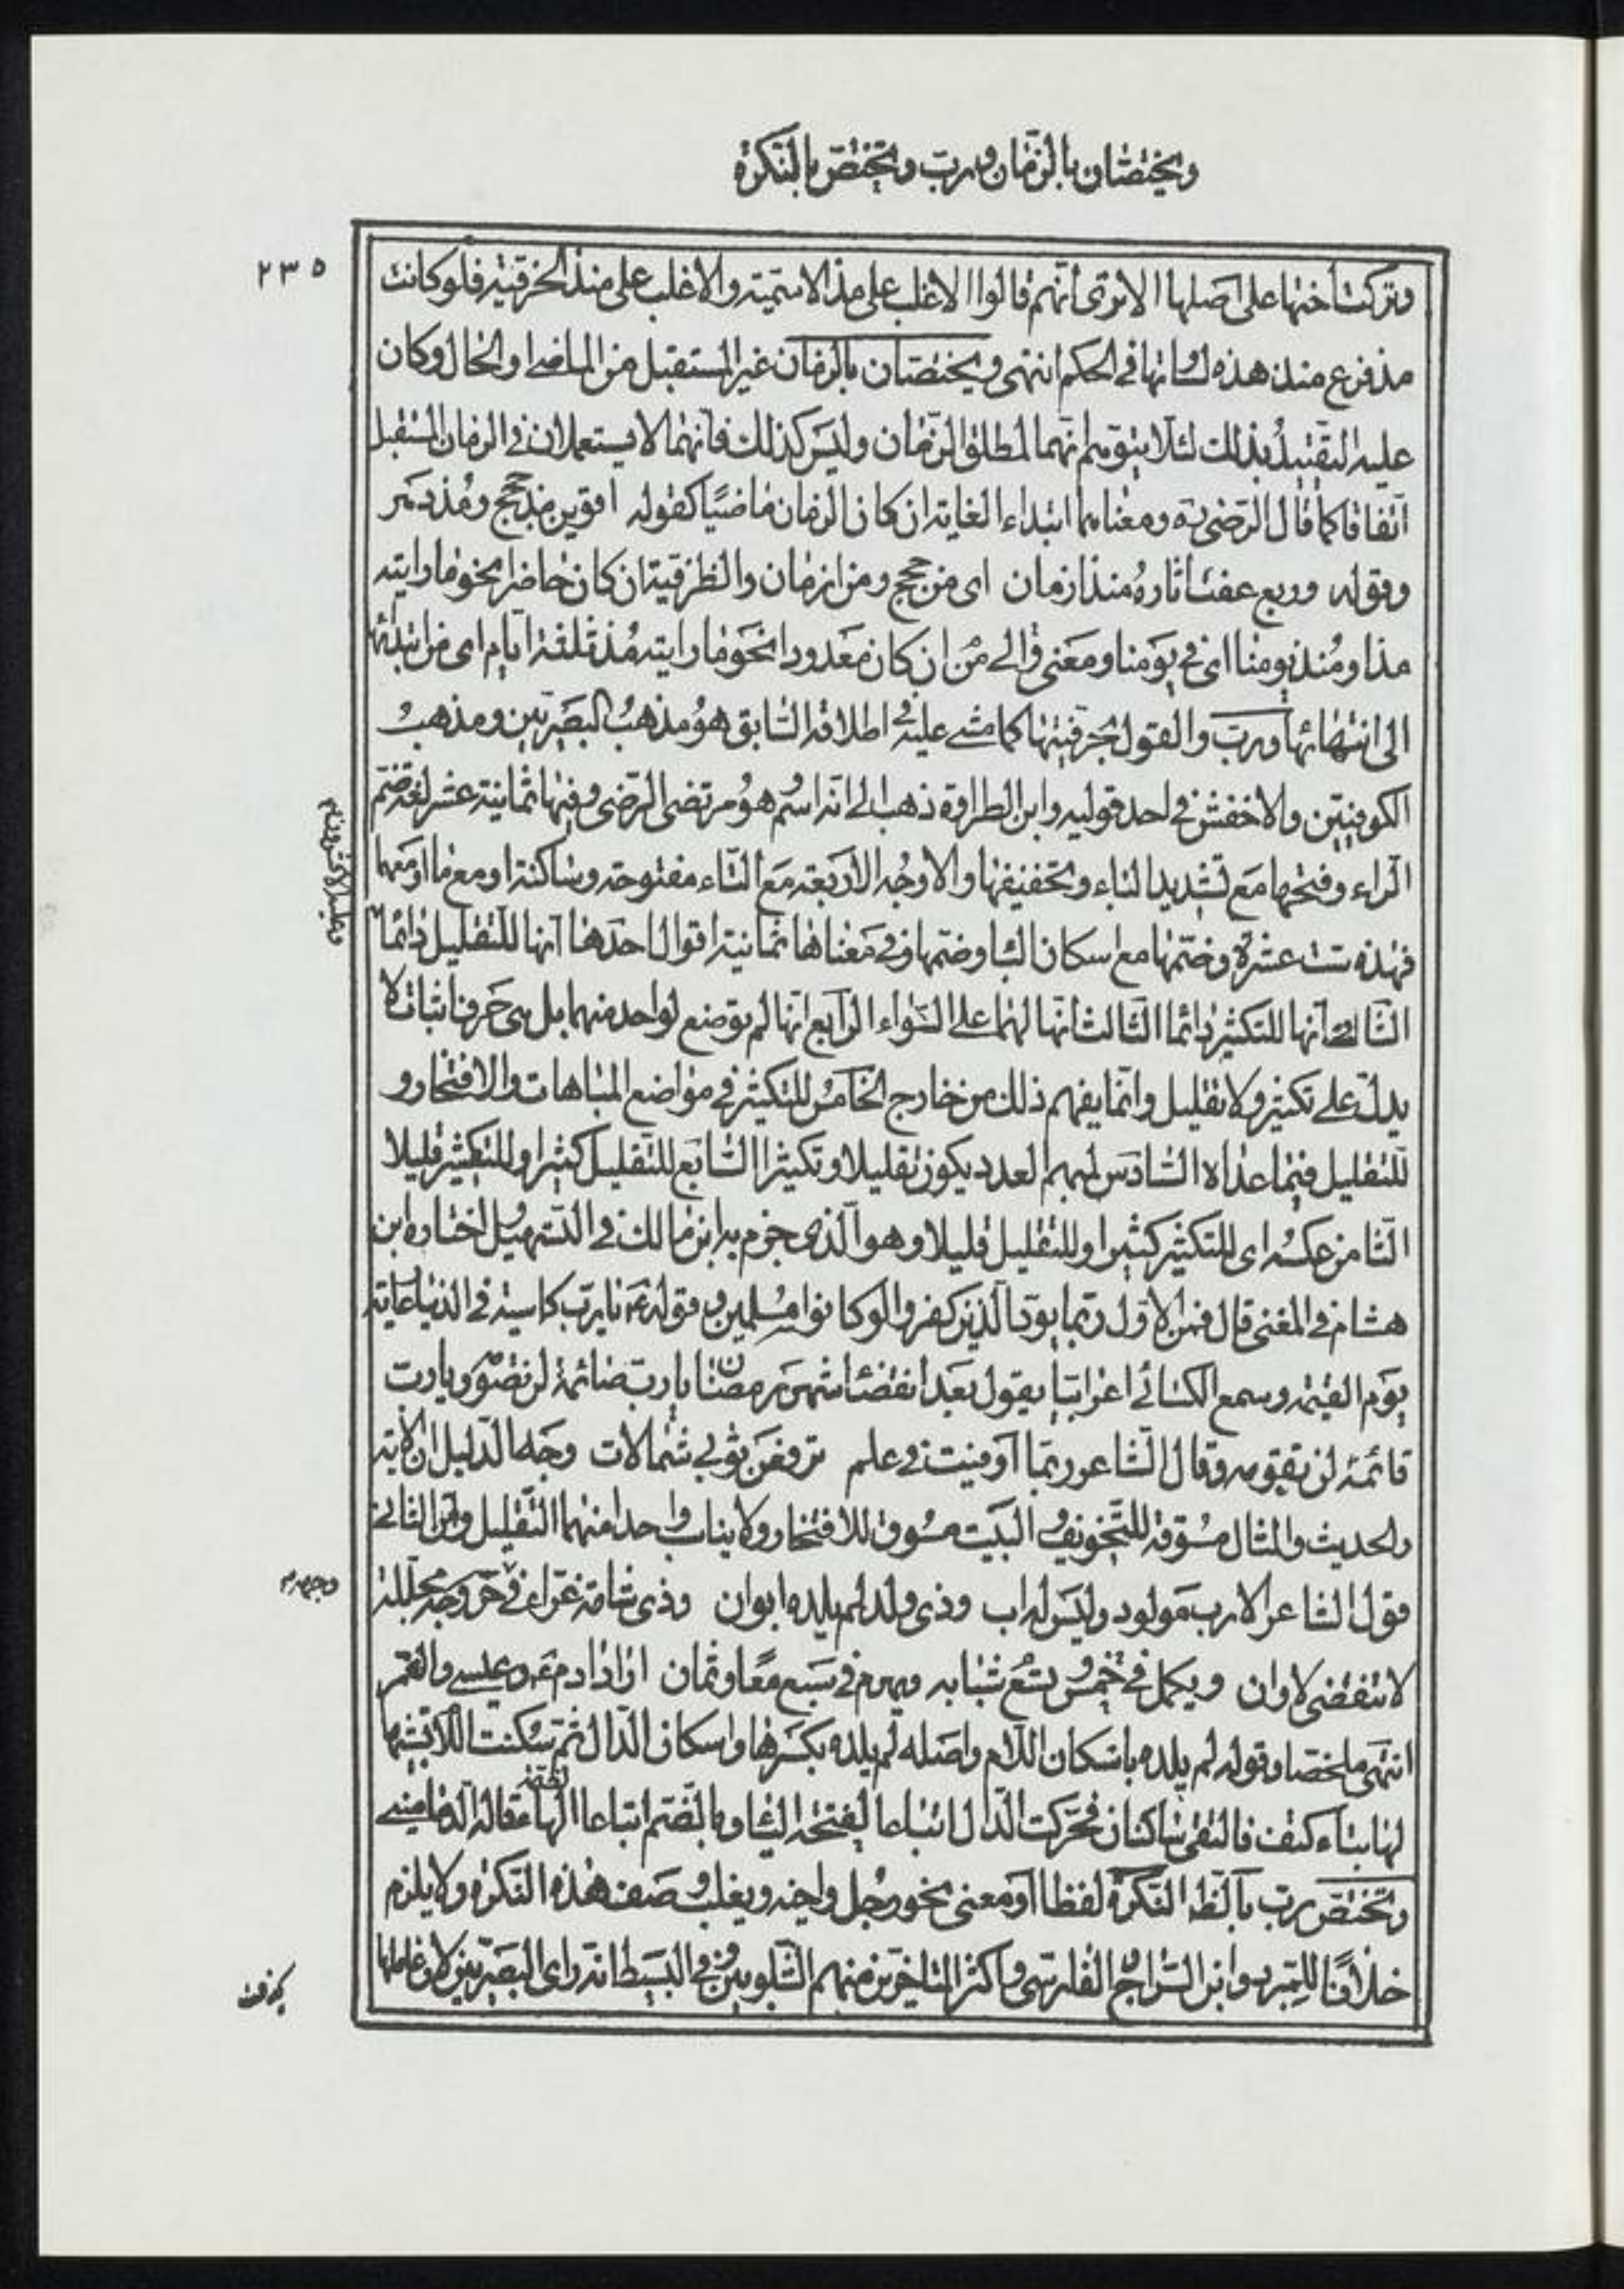 ويختصّان بالزّمان وربّ وتختصّ بالنّكرة
٢٣٥
وتركت أختها على أصلها الا ترى أنّهم قالوا الاغلب على مذ الاسميّة والاغلب على منذ الحرفيّة فلو كانت
مذ فرع منذ هذه لساوتها في الحكم انتهى ويختصّان بالزمان غير المستقبل من الماضي او الحال وكان
عليه التقييدُ بذلك لئلّا يتوهّم انّهما لمطلق الزّمان وليس كذلك فانّهما لا يستعملان في الزمان المستقبل
اتّفاقا كما قال الرّضىّ ره ومعناهما ابتداء الغاية ان كان الزمان ماضيًا كقوله اقوين مذ حجج ومُذ دهر
وقوله وربع عفت اثارهُ منذ ازمان اى من حجج ومن ازمان والظرفيّة ان كان حاضرا نحو ما رايته
مذ او مُنذ يومنا اى في يومنا ومعنى من والى ان كان معدودا نحو ما رايته مُذ ثلثة ايّام اى من ابتدائها
الى انتهائها وربّ والقول بحرفيّتها كما مشى عليه في اطلاقه السّابق هو مذهبُ البصريّين ومذهبُ
الكوفيّين والاخفش في احد قوليه وابن الطراوة ذهب الى انّه اسمٌ هو مرتضى الرّضى وفيها ثمانية عشر لغة ضمّ
الرّاء وفتحها مع تشديد الباء وتخفيفها والاوجُه الاربعة مع التّاء مفتوحة وساكنة او مع ما او معهما
فهذه ستّ عشرة وضمّها مع اسكان البا وضمّها وفي معناها ثمانية اقوال احدها انها للتقليل دائما
وعليه الاكثرون
الثّانى انّها للتكثير دائما الثّالث انّها لهما على السّواء الرّابع انّها لم توضع لواحد منهما بل هى حرف اثبات لا
يدلّ على تكثير ولا تقليل وانّما يفهم ذلك من خارج الخامسُ للتكثير في مواضع المباهات والافتخار و
للتقليل فيما عداه السّادس لمبهم العدد يكون تقليلا وتكثيرا السّابع للتقليل كثيرا وللتكثير قليلا
الثّامن عكسه اى للتكثير كثيرا وللتقليل قليلا وهو الّذى جزم به ابن مالك في التّسهيل واختاره ابن
هشام في المغنى قال فمن الاوّل ربّما يودّ الّذين كفروا لو كانوا مسلمين وقوله ع يا ربّ كاسية في الدّنيا عارية
يوم القيمة وسمع الكسائى اعرابيّا يقول بعد انقضا شهر رمضان يا ربّ صائمة لن تصومه ويا ربّ
قائمة لن تقومه وقال الشّاعر ربّما اوفيت في علم ترفعن ثوبى شمالات وجه الدّليل ان الاية
والحديث والمثال مسُوقة للتّخويف والبيت مسُوق للافتخار ولا يناسب واحدا منهما التّقليل ومن الثانى
قول الشاعر الا ربّ مولود وليس له اب وذى ولد لم يلده ابوان وذى شامة غرّاء في حرّ وجهه مجلّلة
وجهه
لا تنقضى لاوان ويكمل في خمس وتسع شبابه ويهرم في سبع معًا وثمان اراد ادم ع وعيسى والقمر
انتهى ملخّصا وقوله لم يلده باسكان اللّام واصله لم يلده بكسرها واسكان الدّال ثم سكنت اللّام تشبيها
لها بتاء كتف فالتقى ساكنان فحرّكت الدّال اتباعا لفتحة اليا وبالضّم اتباعا لضمّة الهاء قاله الدّمامينى
وتختصّ ربّ بالظّ النّكرة لفظا او معنى نحو رجُل واخيه ويغلب وصف هذه النّكرة ولا يلزم
خلافًا للمبرد وابن السّراج والفارسىّ واكثر المتاخّرين منهم الشّلوبين وفي البسيط انّه راى البصريّين لان عاملها